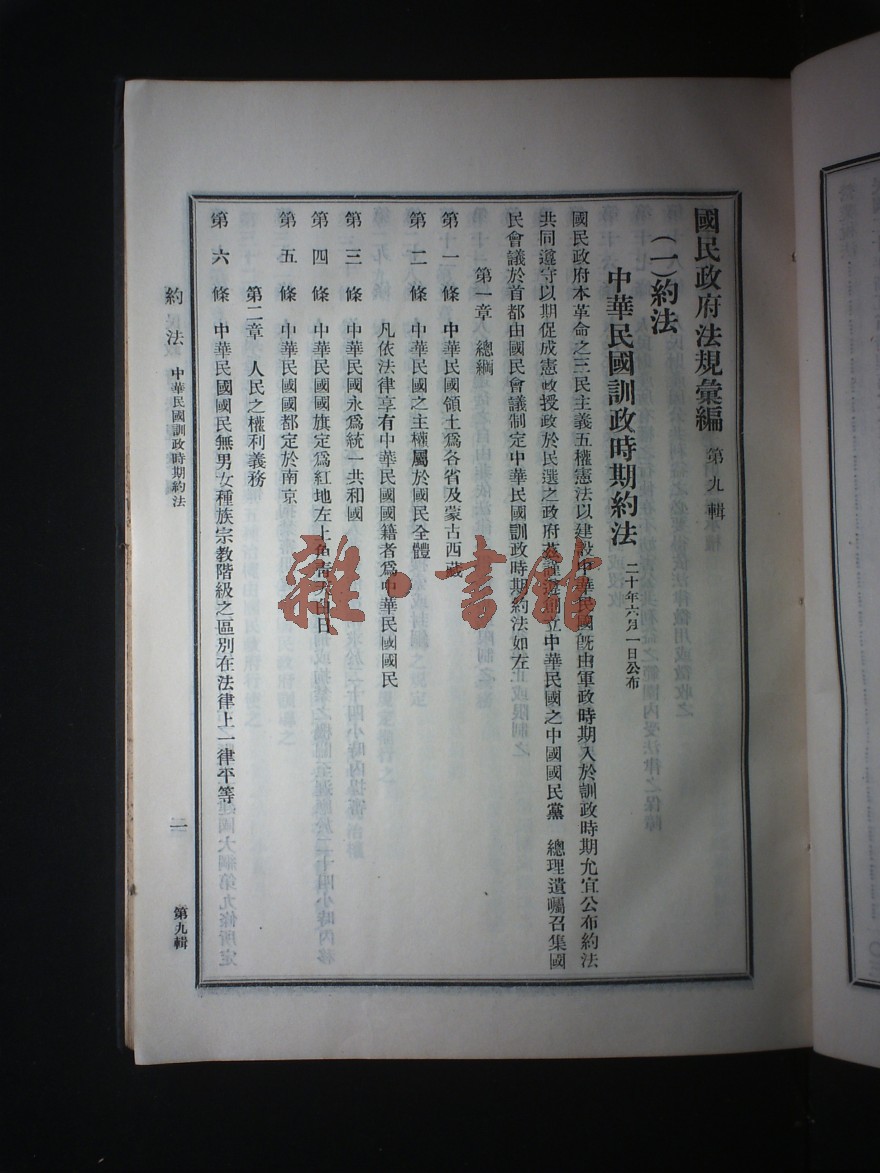 國民政府法規彙編　第九輯
(一)約法
中華民國訓政時期約法　二十年六月一日公布
國民政府本革命之三民主義五權憲法以建設中華民國既由軍政時期入於訓政時期允宜公布約法
共同遵守以期促成憲政授政於民選之政府茲謹遵創立中華民國之中國國民黨　總理遺囑召集國
民會議於首都由國民會議制定中華民國訓政時期約法如左
第一章　總綱
第一條　中華民國領土爲各省及蒙古西藏
第二條　中華民國之主權屬於國民全體
凡依法律享有中華民國國籍者爲中華民國國民
第三條　中華民國永爲統一共和國
第四條　中華民國國旗定爲紅地左上角青天白日
第五條　中華民國國都定於南京
第二章　人民之權利義務
第六條　中華民國國民無男女種族宗教階級之區別在法律上一律平等
約法　中華民國訓政時期約法　一　第九輯
雜·書館